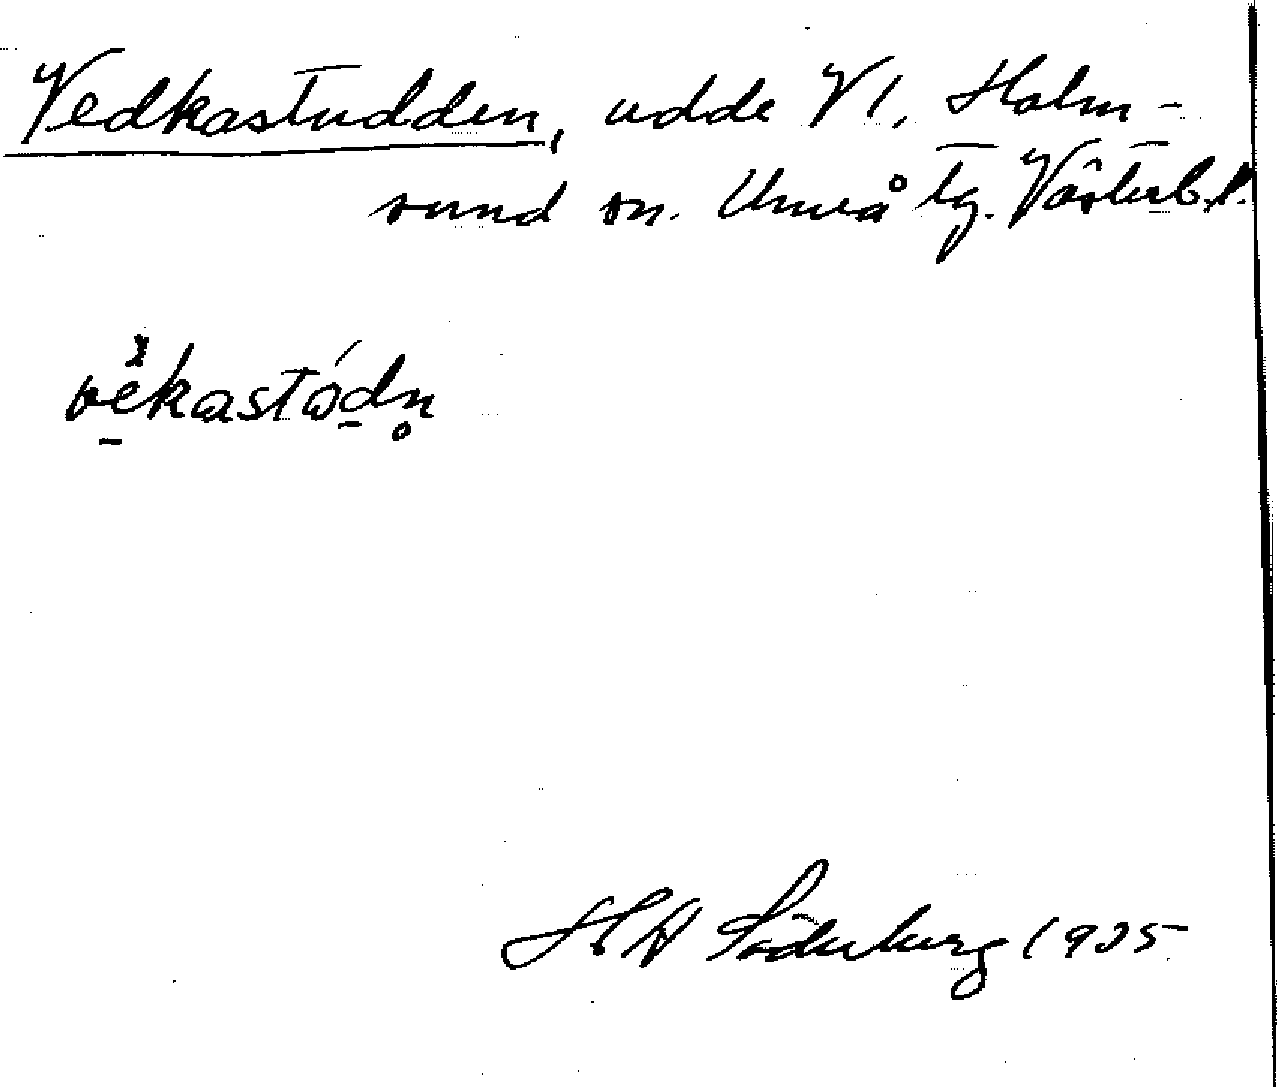 Vedkastudden, udde Vl. Holm-
sund sn. Umeå tg. Västerb. l.
vèkastódn̥
H W Söderberg 1935